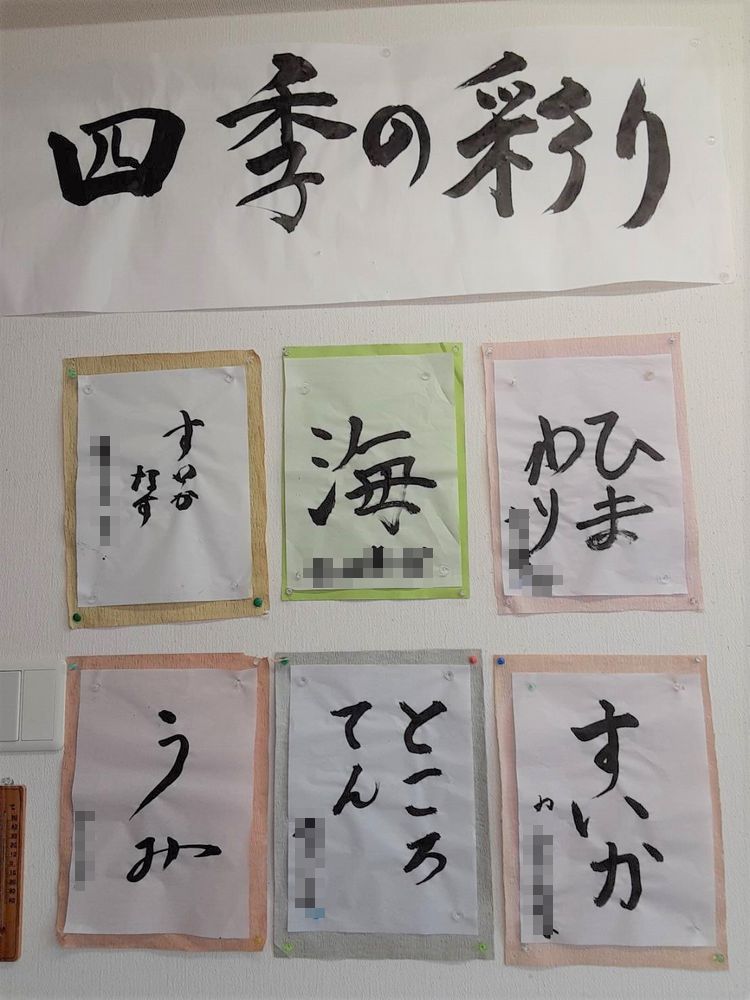 四季の彩り
すいか
なす
海
ひま
わり
うみ
ところ
てん
すいか